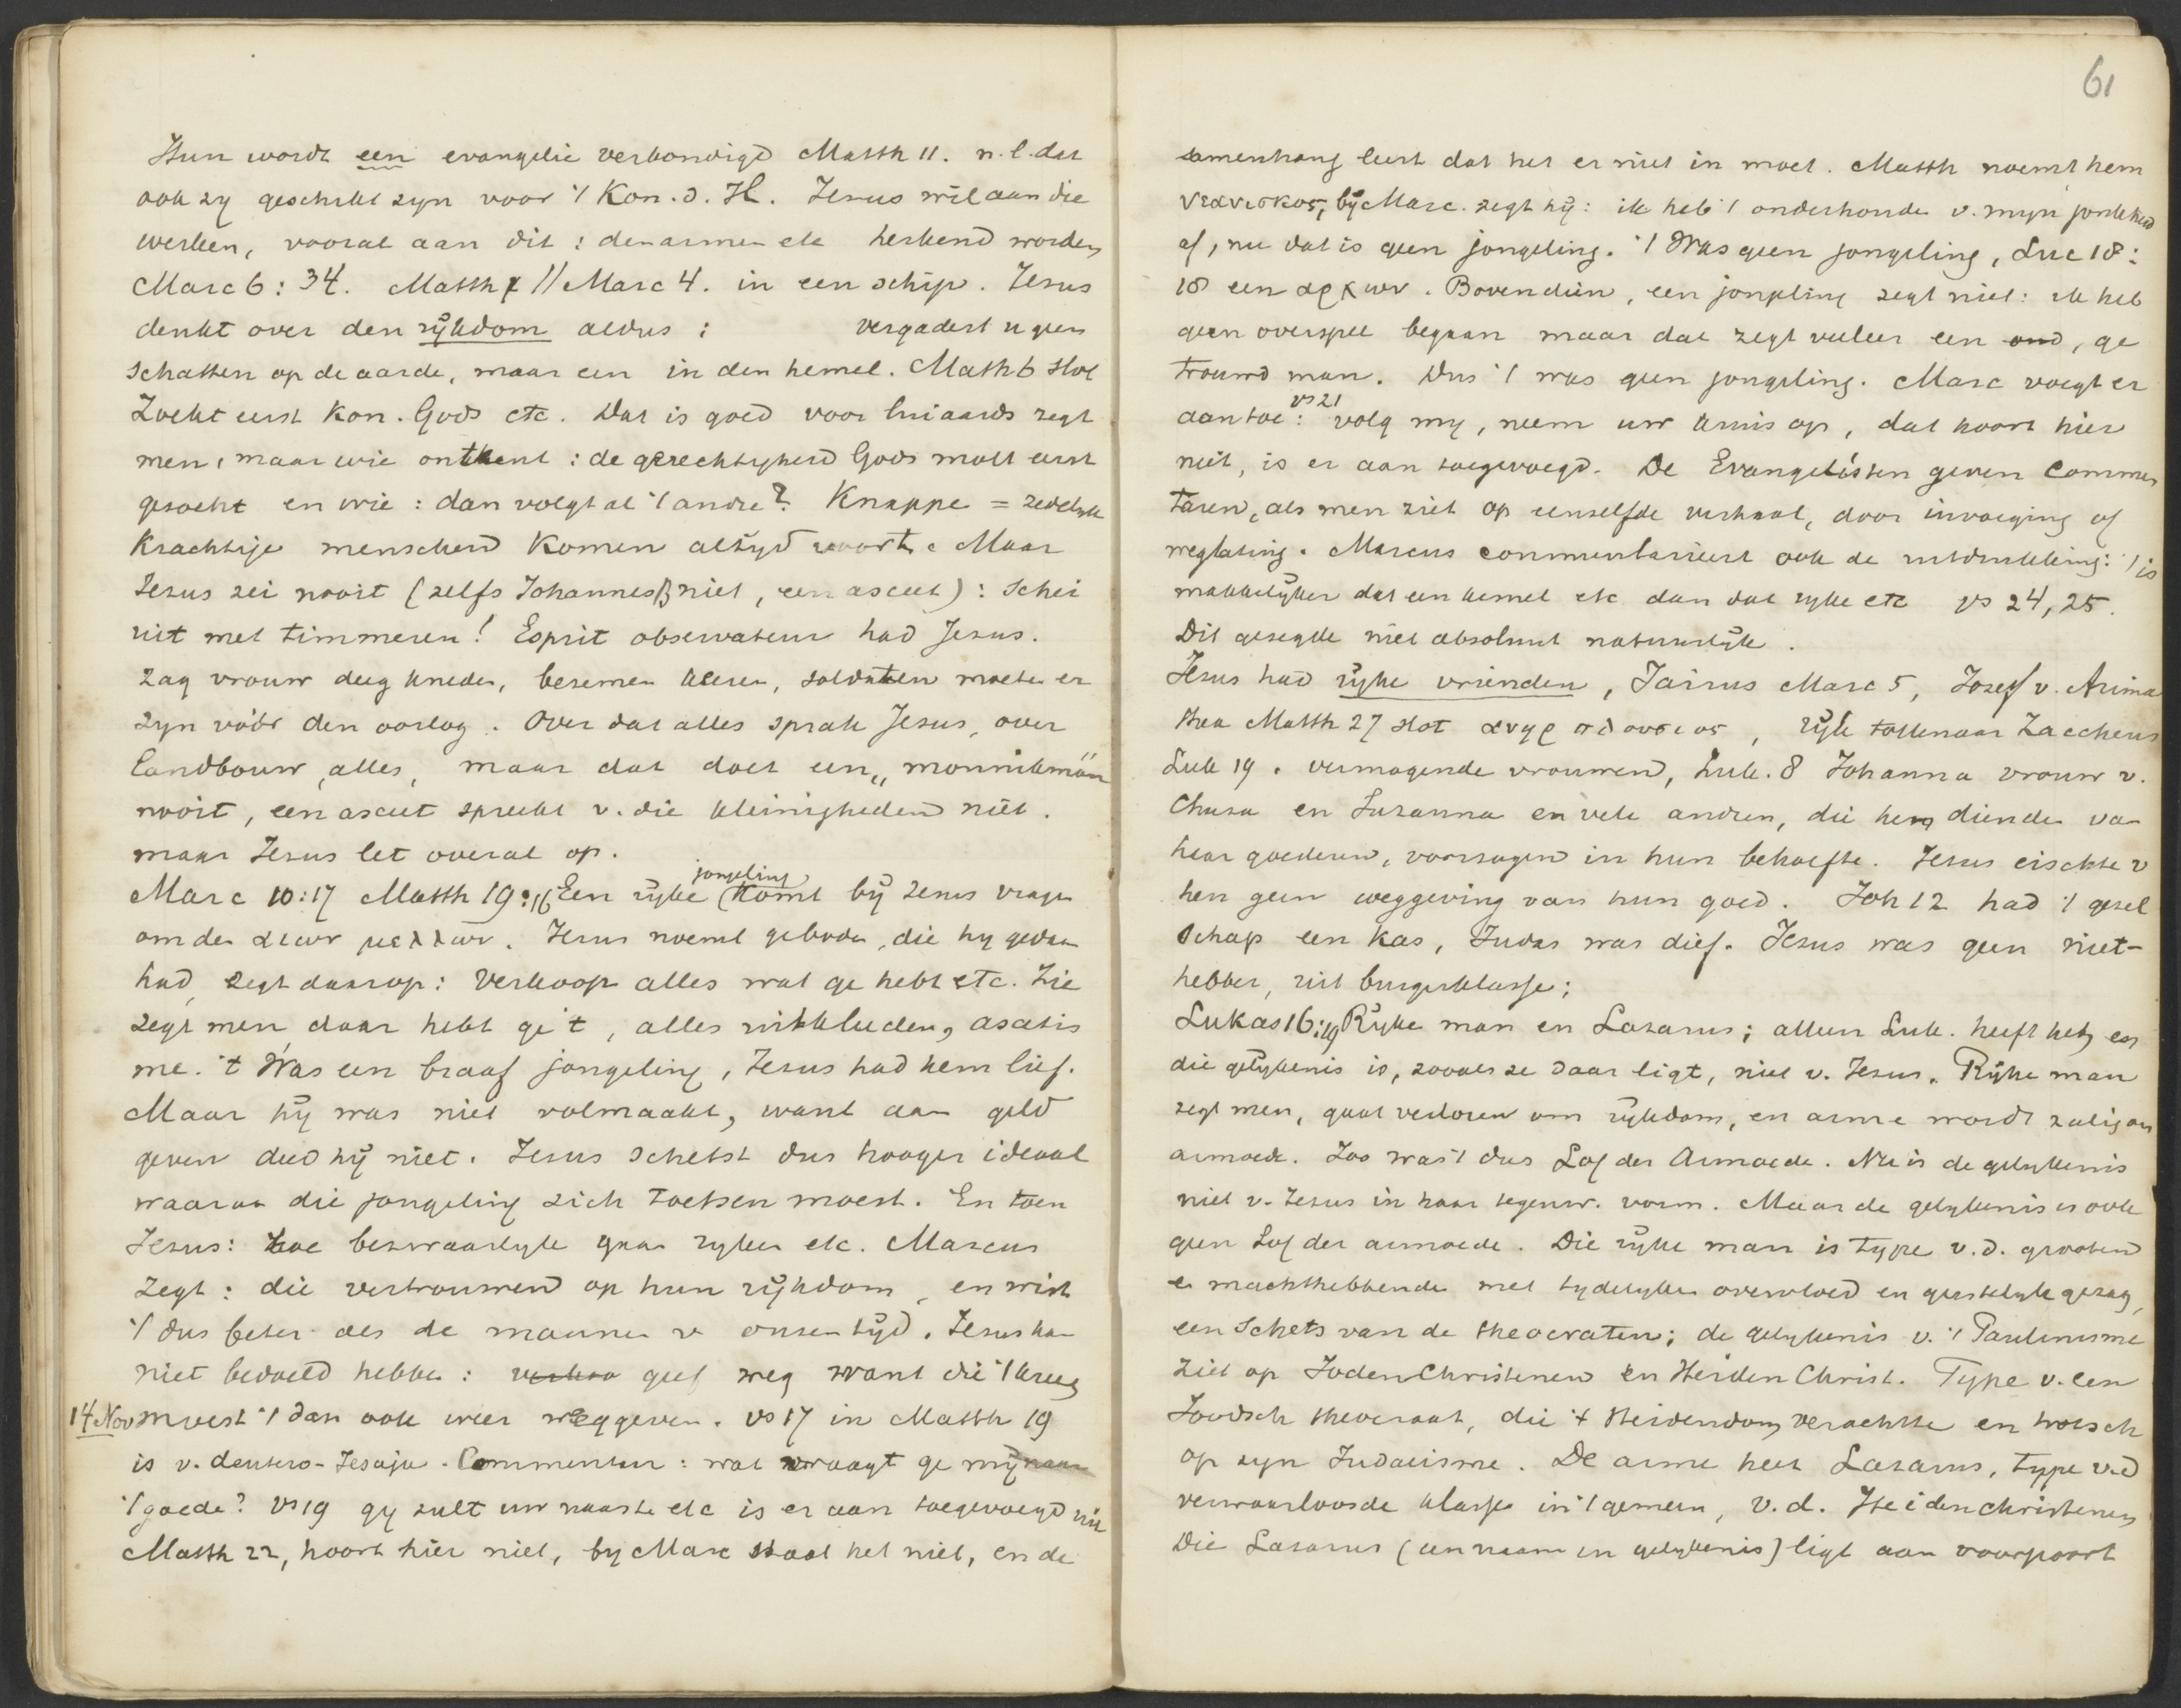 Hun wordt een evangelie verkondigd Matth 11. n.l. dat
ook zy geschikt zyn voor 't Kon. d. H. Jesus wil aan die
werken, vooral aan dit: den armen etc herkend worden
Marc 6: 34. Matth // Marc 4. in een schip. Jesus
denkt over den rijkdom aldus: vergadert u geen
schatten op de aarde, maar een in den hemel. Math 6 slot
Zoekt eerst Kon. Gods etc. Dat is goed voor luiaards zegt
men, maar wie ontkent: de gerechtigheid Gods moet eerst
gezocht en wie: dan volgt al 't andre? Knappe = zedelyk
krachtige menschen komen altijd voort. Maar
Jezus zei nooit (zelfs Johannes B niet, een asceet): Schei
uit met timmeren! Esprit observateur had Jesus.
zag vrouw deeg kneden, bezemen keeren, soldaten moeten er
zyn vóór den oorlog. Over dat alles sprak Jesus, over
landbouw, alles, maar dat doet een „monnikman"
nooit, een asceet spreekt v. die kleinigheden niet.
maar Jesus let overal op.
jongeling
Marc 10:17 Matth 19:16 Een rijke komt bij Jesus vragen
om den αιων μελλων. Jesus noemt geboden, die hy gedaan
had, zegt daarop: Verkoop alles wat ge hebt etc. Zie
zegt men daar hebt ge 't, alles uitkleeden, ascetis
me. 't Was een braaf jongeling, Jesus had hem lief.
Maar hij was niet volmaakt, want aan geld
geven deed hij niet. Jesus schetst dus hooger ideaal
waaraan die jongeling zich toetsen moest. En toen
Jesus: hoe bezwaarlyk gaan ryken etc. Marcus
zegt: die vertrouwen op hun rijkdom, en wist
't dus beter als de mannen v onzen tijd. Jesus kan
niet bedoeld hebben: geef weg want die 't kreeg
14 Nov moest 't dan ook weer weggeven. vs 17 in Matth 19
is v. deutero-Jesaja. Commentaar: wat vraagt ge mij naar
't goede? vs 19 gy zult uw naaste etc is er aan toegevoegd uit
Matth 22, hoort hier niet, by Marc staat het niet, en de
61
samenhang leert dat het er niet in moet. Matth noemt hem
νεανισκος, bij Marc. zegt hij: ik heb 't onderhouden v. myn jonkheid
af, nu dat is geen jongeling. 't Was geen jongeling, Luc 18:
18 een αρχων. Bovendien, een jongeling zegt niet: ik heb
geen overspel begaan maar dat zegt veeleer een oud, ge
trouwd man. Dus 't was geen jongeling. Marc voegt er
vs 21
aan toe: volg my, neem uw kruis op, dat hoort hier
niet, is er aan toegevoegd. De Evangelisten geven commen
taren, als men ziet op eenzelfde verhaal, door invoeging of
weglating. Marcus commentarieert ook de uitdrukking: 't is
makkelijker dat een kemel etc dan dat ryke etc vs 24, 25.
Dit gezegde niet absoluut natuurlijk.
Jesus had rijke vrienden, Jairus Marc 5, Josef v. Arima
thea Matth 27 slot ανηρ πλουσιος, rijk tollenaar Zaccheus
Luk 19. vermogende vrouwen, Luk. 8 Johanna vrouw v.
Chusa en Susanna en vele andren, die hem dienden van
haar goederen, voorzagen in hun behoefte. Jesus eischte v
hen geen weggeving van hun goed. Joh 12 had 't gezel
schap een kas, Judas was dief. Jesus was geen niet-
hebber, uit burgerklasse;
Lukas 16:19 Rijke man en Lazarus; alleen Luk. heeft het, en
die gelijkenis is, zooals ze daar ligt, niet v. Jesus. Rijke man
zegt men, gaat verloren om rijkdom, en arme wordt zalig om
armoede. Zoo was 't dus Lof der Armoede. Nu is de gelykenis
niet v. Jesus in haar tegenw. vorm. Maar de gelykenis is ook
geen Lof der armoede. Die rijke man is type v. d. grooten
en machthebbenden met tydelyken overvloed en geestelyk gezag,
een schets van de theocraten; de gelykenis v. 't Paulinisme
ziet op JodenChristenen en Heiden Christ. Type v. een
Joodsch theocraat, die 't Heidendom verachtte en trotsch
op zyn Judaisme. De arme heet Lazarus, type v.d
verwaarloosde klasse in 't gemeen, v. d. Heidenchristenen
Die Lazarus (een naam in gelykenis) ligt aan voorpoort